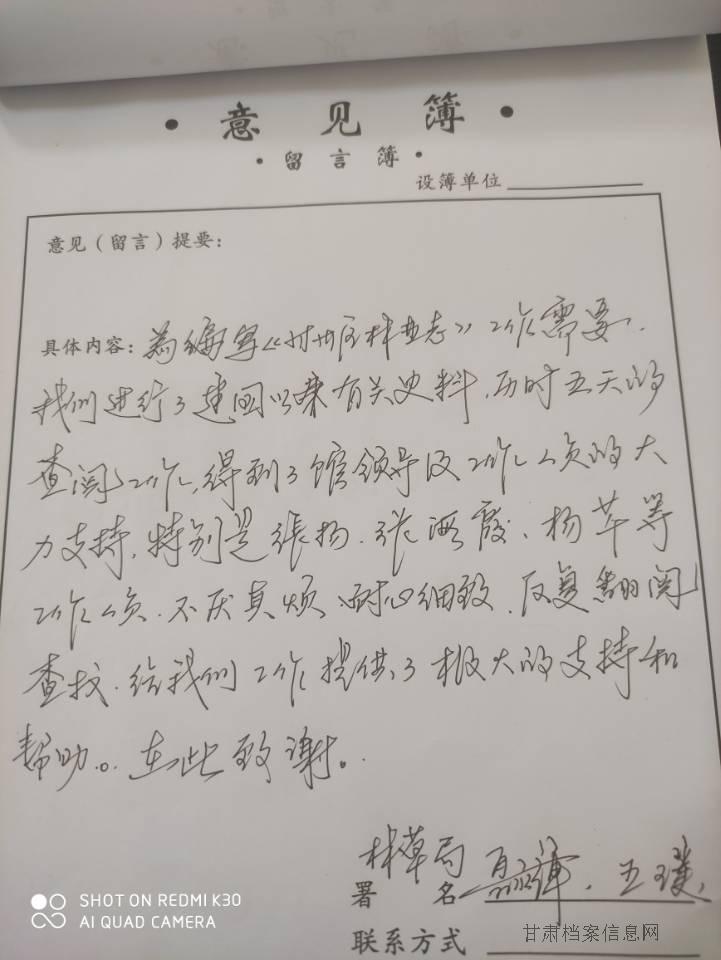 ·意见簿·
·留言簿·
设簿单位
意见(留言)提要:
具体内容:为编写《甘州区林业志》工作需要.
我们进行了建国以来有关史料,历时五天的
查阅工作,得到了馆领导及工作人员的大
力支持,特别是張扬、张海霞、杨苹等
工作人员.不厌其烦 耐心细致.反复翻阅
查找.给我们工作提供了极大的支持和
帮助。在此致谢。
林草局
署名 王璞
联系方式
SHOT ON REDMI K30
AI QUAD CAMERA
甘肃档案信息网